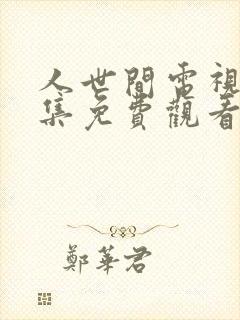 人世間電視
集免費觀看
鄭華君